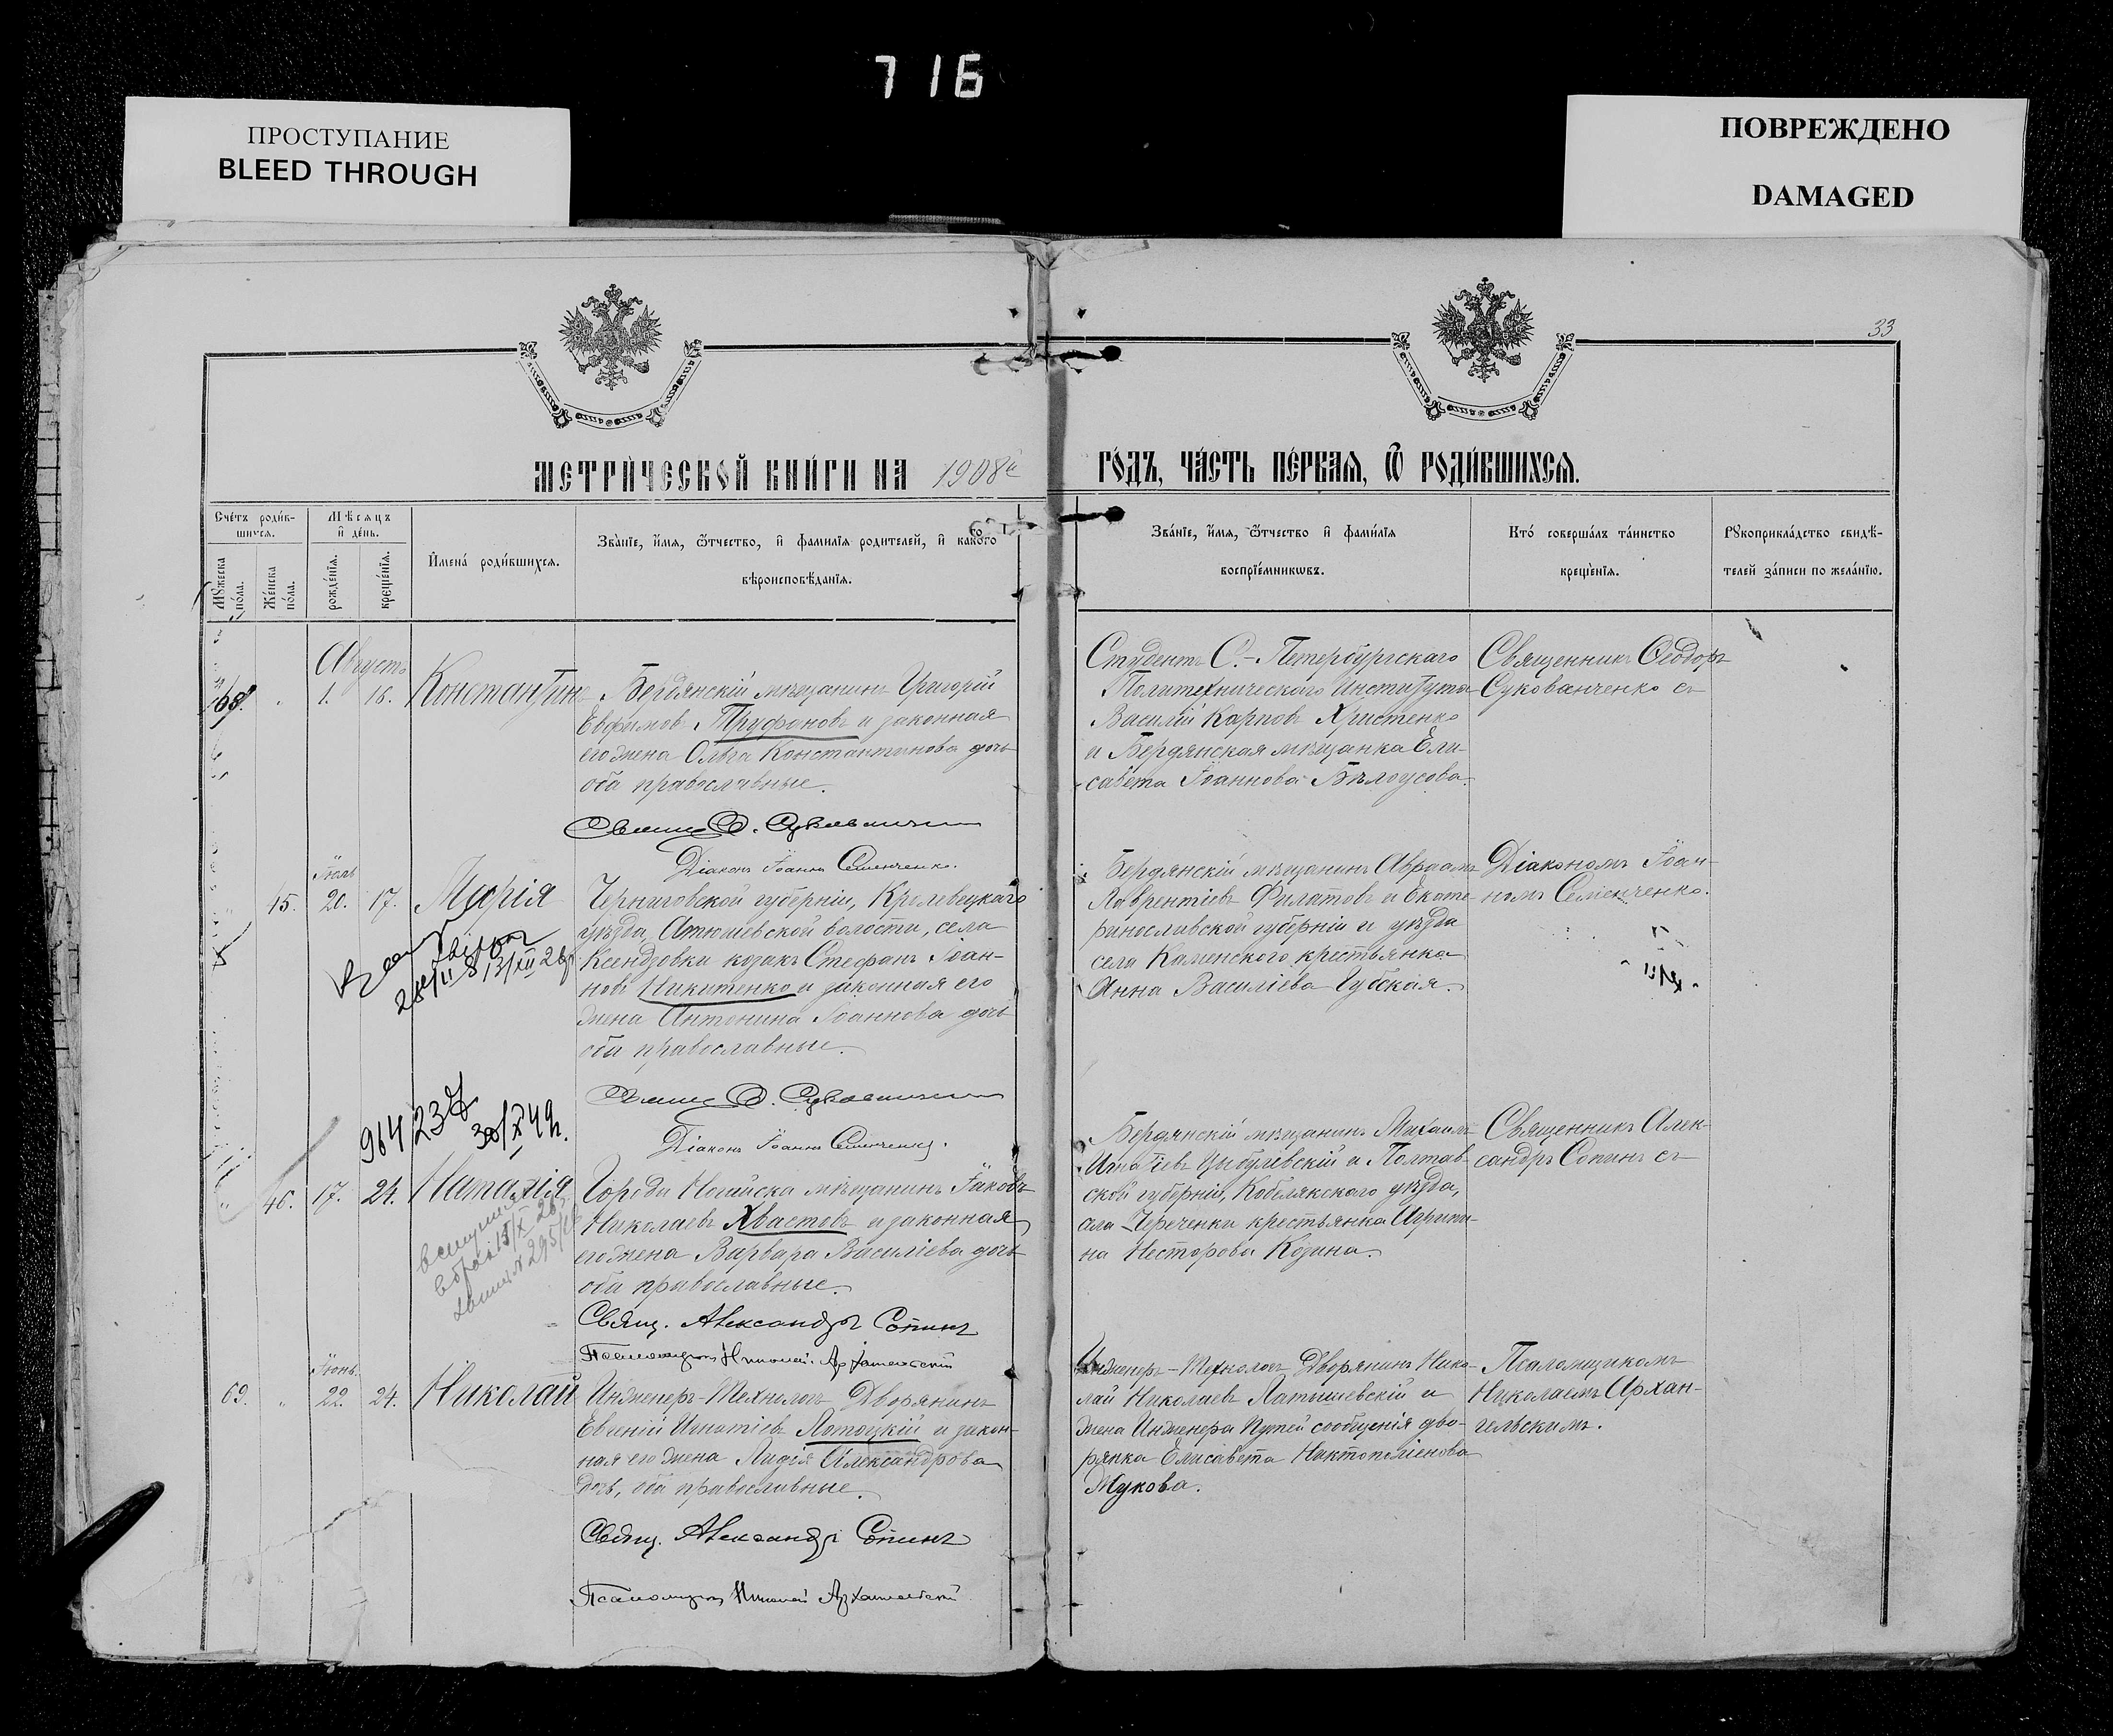 716
ПРОСТУПАНИЕ
BLEED THROUGH
ПОВРЕЖДЕНО
DAMAGED
33
МЕТРИЧЕСКОЙ КНИГИ НА 1908й
ГОДЪ, ЧАСТЬ ПЕРВАЯ, Ѿ РОДИВШИХСЯ.
Счетъ родив-
шихся.
Мѣсяцъ
и день.
Мужеска
пола.
Женска
пола.
рожденія.
крещенія.
Имена родившихся.
Званіе, имя, ѿтчество, и фамилія родителей, и какого
вѣроисповѣданія.
Званіе, имя, ѿтчество и фамилія
воспріемниковъ.
Кто совершалъ таинство
крещенія.
Рукоприкладство свидѣ-
телей записи по желанію.
Августъ
68. " 1. 16. Константинъ
Бердянскій мѣщанинъ Григорій
Евфимовъ Труфоновъ и законная
его жена Ольга Константинова дочь
оба православные.
Діаконъ Іоаннъ Семенченко.
Студентъ С.-Петербургскаго
Политехническаго Института
Василій Карповъ Христенко
и Бердянская мѣщанка Ели-
савета Іоаннова Бѣлоусова.
Священникъ Ѳеодоръ
Сукованченко съ
Іюль
45. 20. 17. Марія
Черниговской губерніи, Кролевецкаго
уѣзда, Атюшевской волости, села
Ксендзовки козакъ Стефанъ Іоан-
новъ Никитенко и законная его
жена Антонина Іоаннова дочь
оба православные.
Діаконъ Іоаннъ Семенченко.
Бердянскій мѣщанинъ Авраамъ
Лаврентіевъ Филатовъ и Екате-
ринославской губерніи и уѣзда
села Каменского крестьянка
Анна Василіева Губская.
Діакономъ Іоан-
номъ Семенченко.
964237
30/X 49 г.
" 46. 17. 24. Наталія
Города Ногайска мѣщанинъ Іаковъ
Николаевъ Хвастовъ и законная
его жена Варвара Василіева дочь
оба православные.
Свящ. Александръ Сопинъ
Псаломщикъ Николай Архангельскій
Бердянскій мѣщанинъ Михаилъ
Игнатіевъ Цыбулевскій и Полтав-
ской губерніи, Кобелякскаго уѣзда,
села крестьянка Агрипи-
на Несторова Козина.
Священникъ Алек-
сандръ Сопинъ съ
Іюнь
69. " 22. 24. Николай
Инженеръ-Технологъ Дворянинъ
Евгеній Игнатіевъ Лотоцкій и закон-
ная его жена Лидія Александрова
дочь, оба православные.
Свящ. Александръ Сопинъ
Псаломщикъ Николай Архангельскій
Инженеръ-Технологъ Дворянинъ Нико-
лай Николаевъ Латышевскій и
жена Инженера Путей сообщенія дво-
рянка Елисавета
Жукова.
Псаломщикомъ
Николаемъ Архан-
гельскимъ.